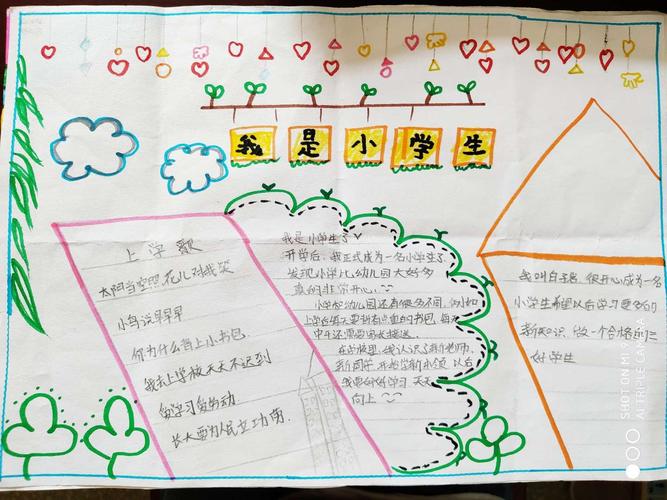 我是小学生
上学歌
太阳当空照,花儿对我笑
小鸟说早早早
你为什么背上小书包
我去上学校天天不迟到
爱学习爱劳动
长大要为人民立功劳.
我是小学生了
开学后,我正式成为一名小学生了
发现小学比幼儿园大好多
真的非常开心
小学和幼儿园还有很多不同,例如
上学每天要背有点重的书包,每天
中午还需要家长接送.
在学校里,我认识了新老师,
新同学,开始学新本领,以后
我要好好学习 天天
向上
我叫白子,很开心成为一名
小学生希望以后学习更多的
新知识,做一个合格的三
好学生
SHOT ON MI
AI TRIPLE CAMERA